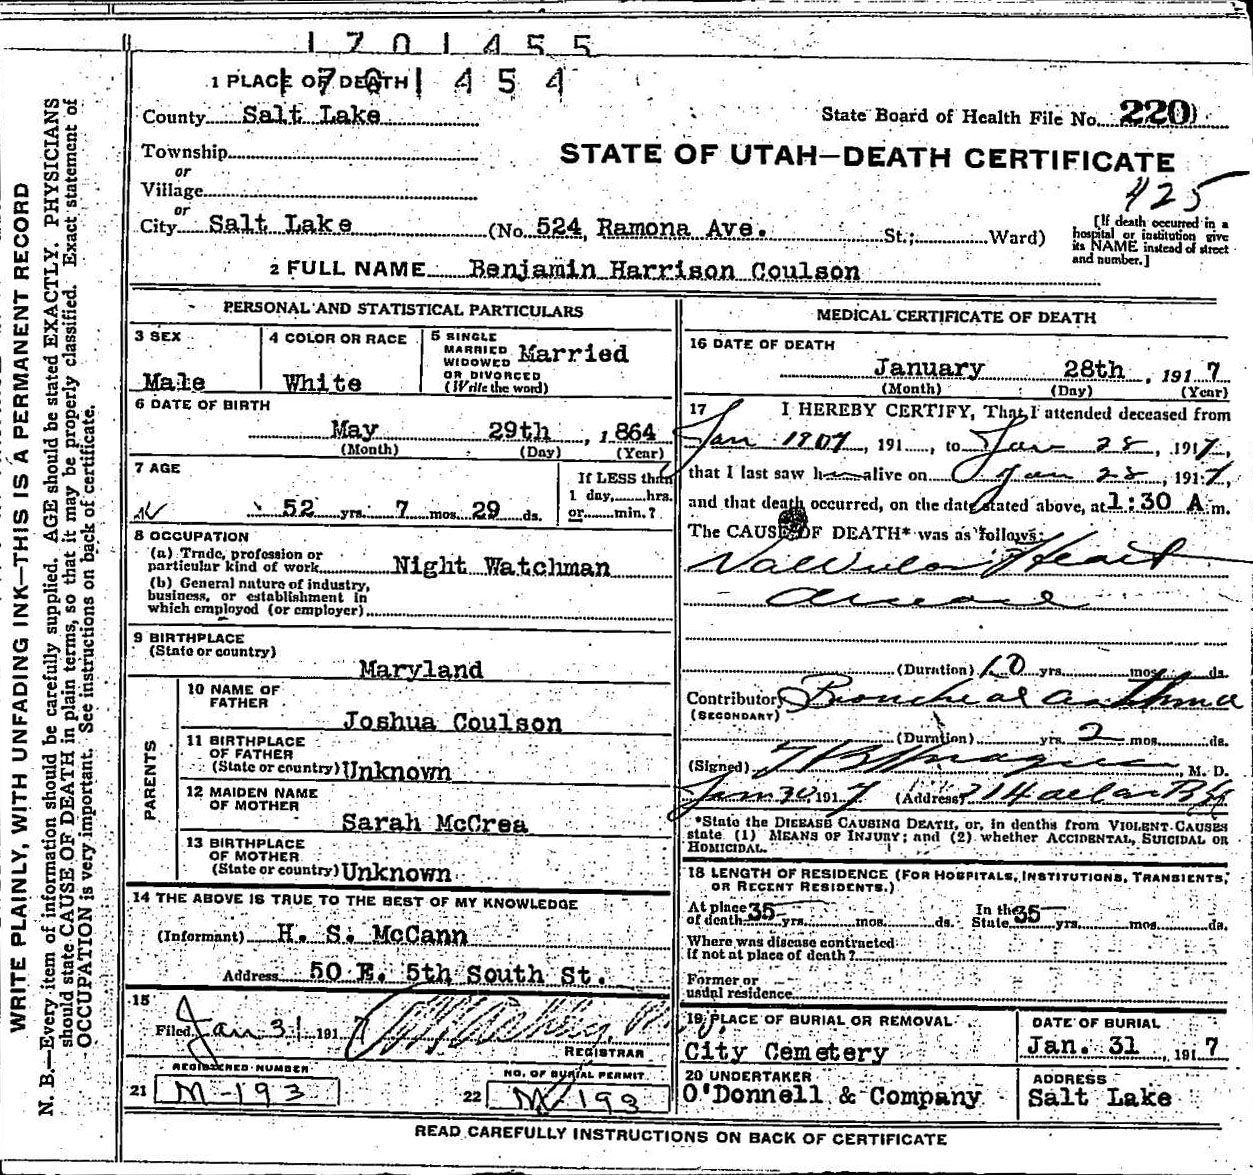 1701455
1701454
1 PLACE OF DEATH
County Salt Lake
State Board of Health File No. 220
Township
or
Village
or
City Salt Lake (No. 524 Ramona Ave. St.; Ward)
STATE OF UTAH—DEATH CERTIFICATE
425
[If death occurred in a
hospital or institution give
its NAME instead of street
and number.]
2 FULL NAME Benjamin Harrison Coulson
PERSONAL AND STATISTICAL PARTICULARS
3 SEX
Male
4 COLOR OR RACE
White
5 SINGLE
MARRIED
WIDOWED
OR DIVORCED
(Write the word)
Married
6 DATE OF BIRTH
May 29th, 1864
(Month) (Day) (Year)
7 AGE
52 yrs. 7 mos. 29 ds.
If LESS than
1 day, hrs.
or min.?
8 OCCUPATION
(a) Trade, profession or
particular kind of work Night Watchman
(b) General nature of industry,
business, or establishment in
which employed (or employer)
9 BIRTHPLACE
(State or country)
Maryland
PARENTS
10 NAME OF
FATHER
Joshua Coulson
11 BIRTHPLACE
OF FATHER
(State or country) Unknown
12 MAIDEN NAME
OF MOTHER
Sarah McCrea
13 BIRTHPLACE
OF MOTHER
(State or country) Unknown
14 THE ABOVE IS TRUE TO THE BEST OF MY KNOWLEDGE
(Informant) H. S. McCann
Address 50 E. 5th South St.
15
Filed Jan 31 1917
REGISTRAR
REGISTERED NUMBER
21 M-193
NO. OF BURIAL PERMIT
22 M 193
MEDICAL CERTIFICATE OF DEATH
16 DATE OF DEATH
January 28th, 1917
(Month) (Day) (Year)
17 I HEREBY CERTIFY, That I attended deceased from
Jan 1907, 191 , to Jan 28, 1917,
that I last saw him alive on Jan 28, 1917,
and that death occurred, on the date stated above, at 1:30 A m.
The CAUSE OF DEATH* was as follows:
Valvular Heart
disease
(Duration) 10 yrs. mos. ds.
Contributory Bronchial asthma
(SECONDARY)
(Duration) yrs. 2 mos. ds.
(Signed) M. D.
Jan 30, 1917 (Address)
*State the DISEASE CAUSING DEATH, or, in deaths from VIOLENT CAUSES
state (1) MEANS OF INJURY; and (2) whether ACCIDENTAL, SUICIDAL OR
HOMICIDAL.
18 LENGTH OF RESIDENCE (FOR HOSPITALS, INSTITUTIONS, TRANSIENTS,
OR RECENT RESIDENTS.)
At place
of death 35 yrs. mos. ds. In the
State 35 yrs. mos. ds.
Where was disease contracted
if not at place of death?
Former or
usual residence
19 PLACE OF BURIAL OR REMOVAL
City Cemetery
DATE OF BURIAL
Jan. 31, 1917
20 UNDERTAKER
O'Donnell & Company
ADDRESS
Salt Lake
READ CAREFULLY INSTRUCTIONS ON BACK OF CERTIFICATE
WRITE PLAINLY, WITH UNFADING INK—THIS IS A PERMANENT RECORD
N. B.—Every item of information should be carefully supplied. AGE should be stated EXACTLY. PHYSICIANS
should state CAUSE OF DEATH in plain terms, so that it may be properly classified. Exact statement of
OCCUPATION is very important. See instructions on back of certificate.